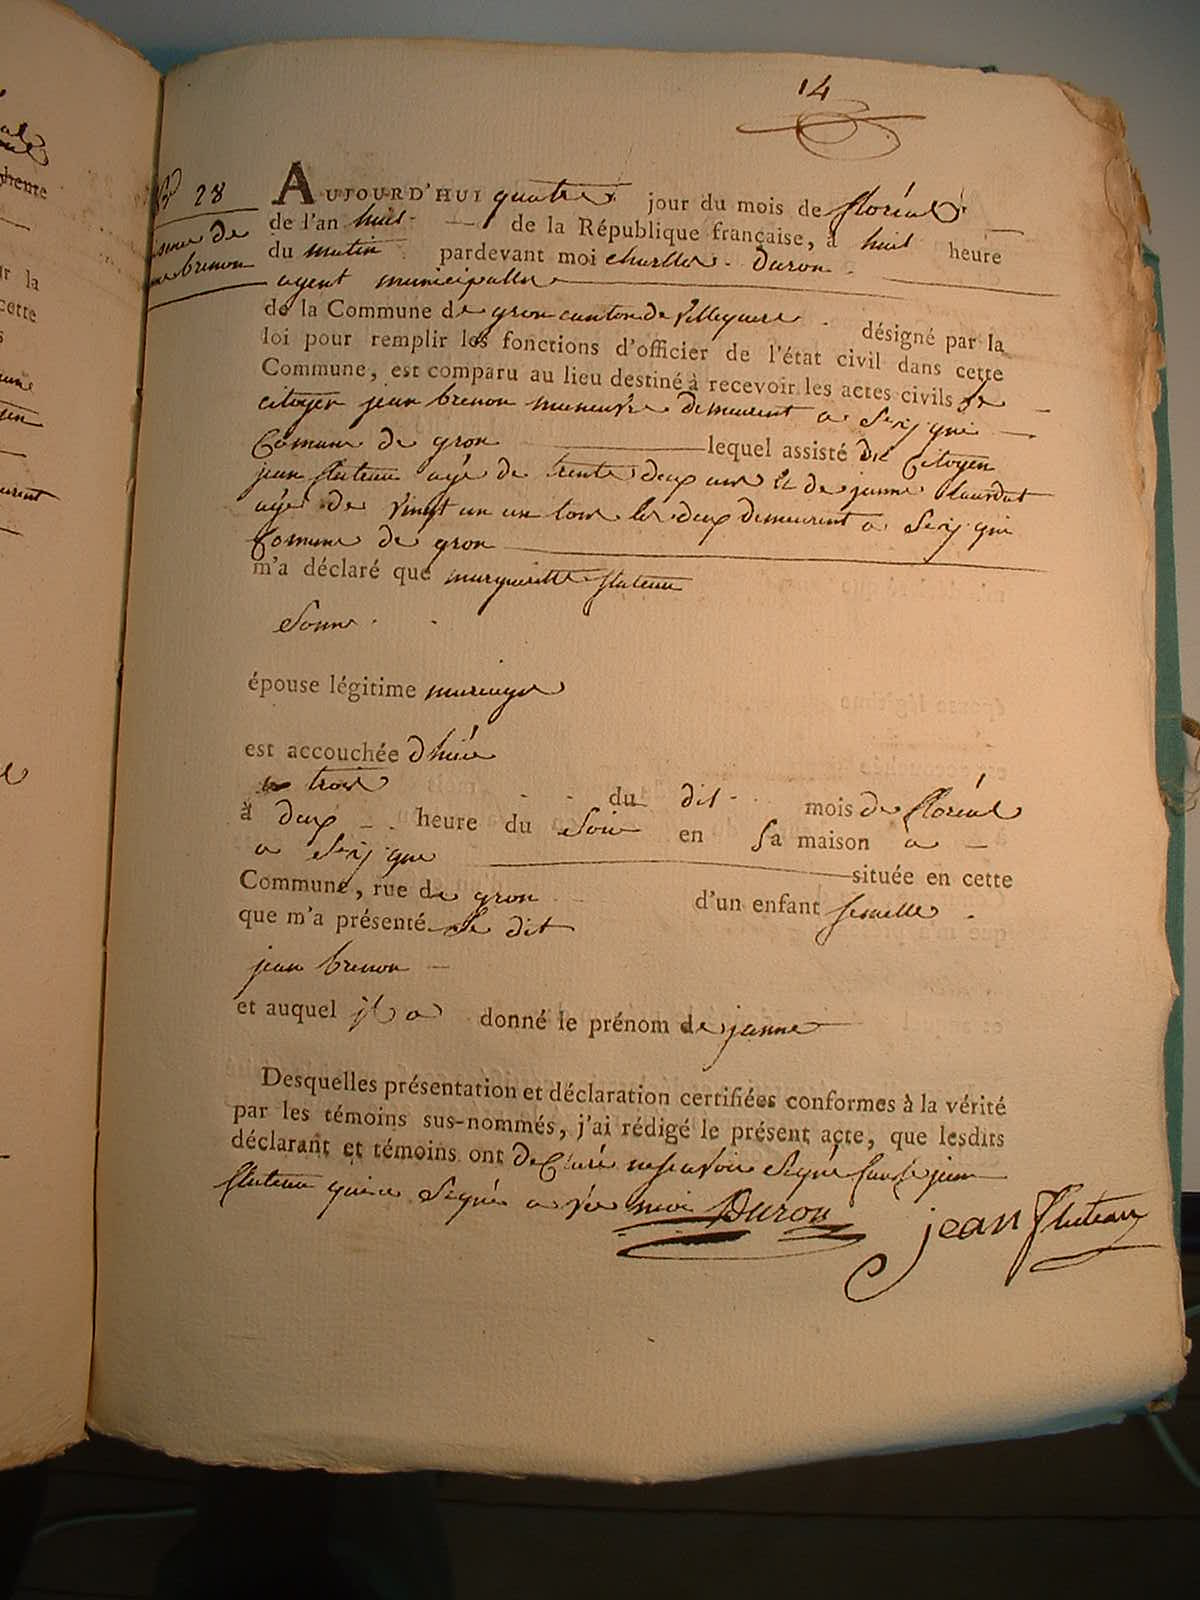 14
28
AUJOURD'HUI quatre jour du mois de floréal
de l'an huit de la République française, à huit heure
du matin pardevant moi charlles Duron
agent municipalle
de la Commune de gron canton de villequiere désigné par la
loi pour remplir les fonctions d'officier de l'état civil dans cette
Commune, est comparu au lieu destiné à recevoir les actes civils le
citoyen jean brenon maneuvre demeurent a
Comune de gron lequel assisté du Citoyen
jean fluteau agé de trente deux ans et de janne
agé de vingt un an tous les deux demeurent a
Comune de gron
m'a déclaré que margueritte fluteau
Sonne
épouse légitime mariage
est accouchée d'hiée
trois du dit mois de floréal
à deux heure du Soir en Sa maison a
a située en cette
Commune, rue de gron d'un enfant femelle
que m'a présenté le dit
jean brenon
et auquel il a donné le prénom de janne
Desquelles présentation et déclaration certifiées conformes à la vérité
par les témoins sus-nommés, j'ai rédigé le présent acte, que lesdits
déclarant et témoins ont declaré ne savoir Signé jean
fluteau qui a Signé a vec moi Duron jean fluteau